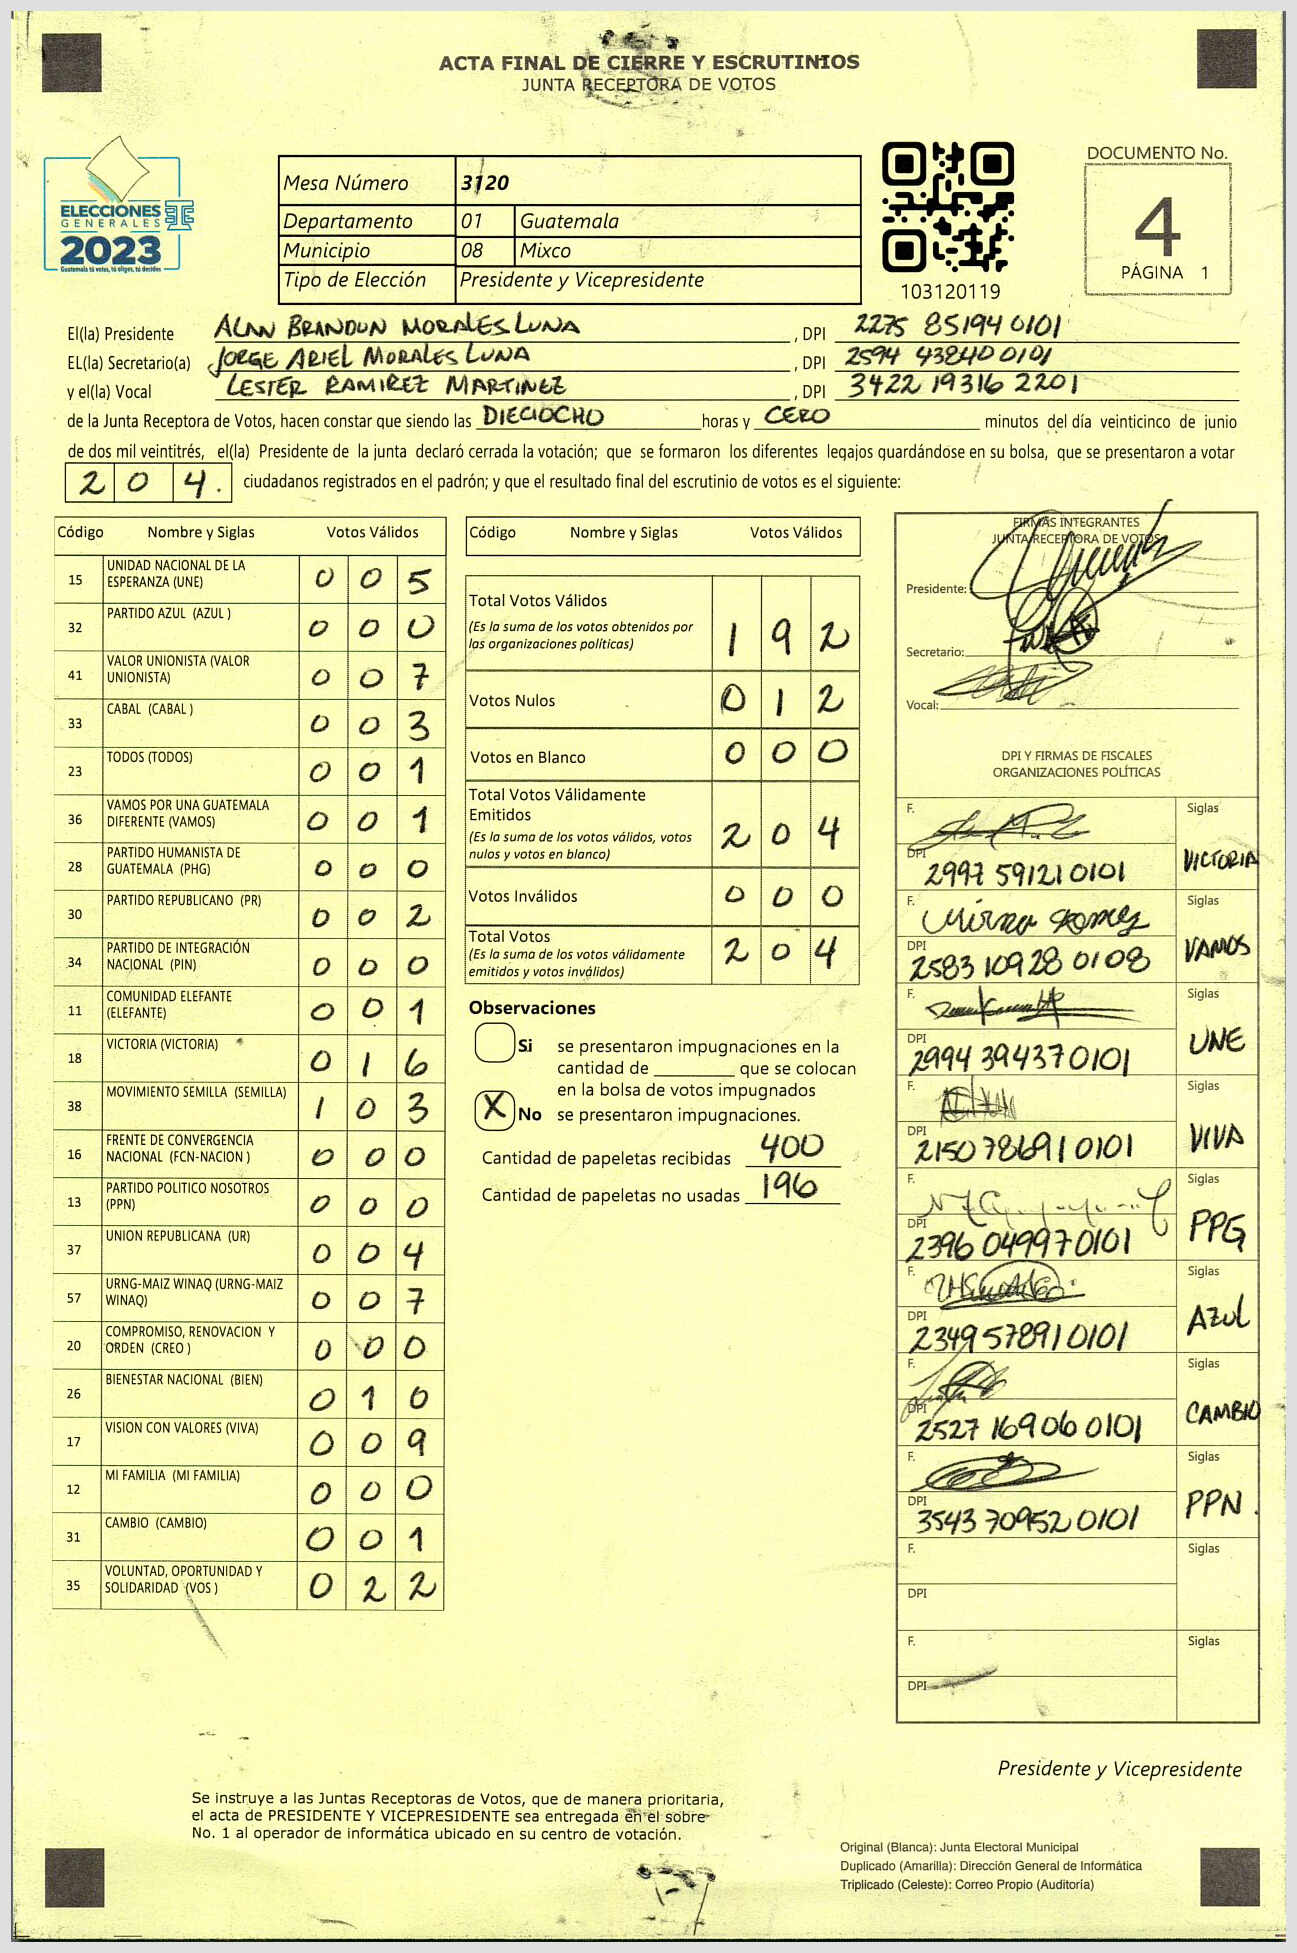 ACTA FINAL DE CIERRE Y ESCRUTINIOS
JUNTA RECEPTORA DE VOTOS
ELECCIONES
GENERALES
2023
Guatemala tú votes, tú eliges, tú decides
Mesa Número 3120
Departamento 01 Guatemala
Municipio 08 Mixco
Tipo de Elección Presidente y Vicepresidente
103120119
DOCUMENTO No.
4
PÁGINA 1
El(la) Presidente ALAN BRANDUN MORALES LUNA , DPI 2275 85194 0101
EL(la) Secretario(a) JORGE ARIEL MORALES LUNA , DPI 2594 43840 0101
y el(la) Vocal LESTER RAMIREZ MARTINEZ , DPI 3422 19316 2201
de la Junta Receptora de Votos, hacen constar que siendo las DIECIOCHO horas y CERO minutos del día veinticinco de junio
de dos mil veintitrés, el(la) Presidente de la junta declaró cerrada la votación; que se formaron los diferentes legajos guardándose en su bolsa, que se presentaron a votar
204. ciudadanos registrados en el padrón; y que el resultado final del escrutinio de votos es el siguiente:
Código Nombre y Siglas Votos Válidos
15 UNIDAD NACIONAL DE LA ESPERANZA (UNE) 0 0 5
32 PARTIDO AZUL (AZUL ) 0 0 0
41 VALOR UNIONISTA (VALOR UNIONISTA) 0 0 7
33 CABAL (CABAL ) 0 0 3
23 TODOS (TODOS) 0 0 1
36 VAMOS POR UNA GUATEMALA DIFERENTE (VAMOS) 0 0 1
28 PARTIDO HUMANISTA DE GUATEMALA (PHG) 0 0 0
30 PARTIDO REPUBLICANO (PR) 0 0 2
34 PARTIDO DE INTEGRACIÓN NACIONAL (PIN) 0 0 0
11 COMUNIDAD ELEFANTE (ELEFANTE) 0 0 1
18 VICTORIA (VICTORIA) 0 1 6
38 MOVIMIENTO SEMILLA (SEMILLA) 1 0 3
16 FRENTE DE CONVERGENCIA NACIONAL (FCN-NACION ) 0 0 0
13 PARTIDO POLITICO NOSOTROS (PPN) 0 0 0
37 UNION REPUBLICANA (UR) 0 0 4
57 URNG-MAIZ WINAQ (URNG-MAIZ WINAQ) 0 0 7
20 COMPROMISO, RENOVACION Y ORDEN (CREO ) 0 0 0
26 BIENESTAR NACIONAL (BIEN) 0 1 0
17 VISION CON VALORES (VIVA) 0 0 9
12 MI FAMILIA (MI FAMILIA) 0 0 0
31 CAMBIO (CAMBIO) 0 0 1
35 VOLUNTAD, OPORTUNIDAD Y SOLIDARIDAD (VOS ) 0 2 2
Código Nombre y Siglas Votos Válidos
Total Votos Válidos 1 9 2
(Es la suma de los votos obtenidos por
las organizaciones políticas)
Votos Nulos 0 1 2
Votos en Blanco 0 0 0
Total Votos Válidamente
Emitidos 2 0 4
(Es la suma de los votos válidos, votos
nulos y votos en blanco)
Votos Inválidos 0 0 0
Total Votos 2 0 4
(Es la suma de los votos válidamente
emitidos y votos inválidos)
Observaciones
Si se presentaron impugnaciones en la
cantidad de ________ que se colocan
en la bolsa de votos impugnados
X No se presentaron impugnaciones.
Cantidad de papeletas recibidas 400
Cantidad de papeletas no usadas 196
FIRMAS INTEGRANTES
JUNTA RECEPTORA DE VOTOS
Presidente:
Secretario:
Vocal:
DPI Y FIRMAS DE FISCALES
ORGANIZACIONES POLÍTICAS
F. Siglas
DPI 2997 59121 0101 VICTORIA
F. Mirna Siglas
DPI 2583 10928 0108 VAMOS
F. Siglas
DPI 2994 39437 0101 UNE
F. Siglas
DPI 2150 78691 0101 VIVA
F. Siglas
DPI 2396 04997 0101 PPG
F. Siglas
DPI 2349 57891 0101 AZUL
F. Siglas
DPI 2527 16906 0101 CAMBIO
F. Siglas
DPI 3543 70952 0101 PPN.
F. Siglas
DPI
F. Siglas
DPI
Presidente y Vicepresidente
Se instruye a las Juntas Receptoras de Votos, que de manera prioritaria,
el acta de PRESIDENTE Y VICEPRESIDENTE sea entregada en el sobre
No. 1 al operador de informática ubicado en su centro de votación.
Original (Blanca): Junta Electoral Municipal
Duplicado (Amarilla): Dirección General de Informática
Triplicado (Celeste): Correo Propio (Auditoría)